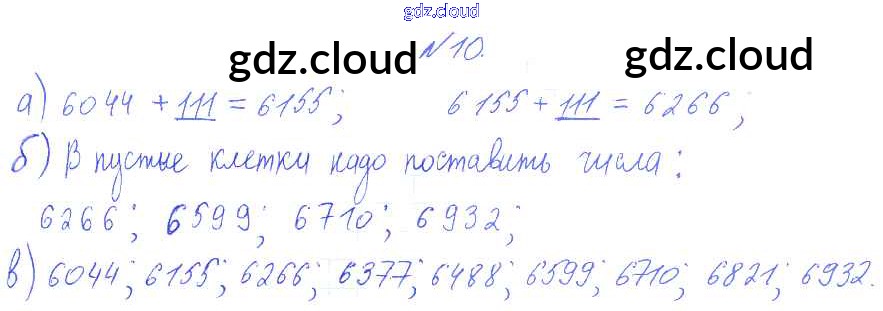 gdz.cloud
gdz.cloud №10. gdz.cloud
а) 6044 + 111 = 6155; 6155 + 111 = 6266;
б) В пустые клетки надо поставить числа:
6266; 6599; 6710; 6932;
в) 6044; 6155; 6266; 6377; 6488; 6599; 6710; 6821; 6932.